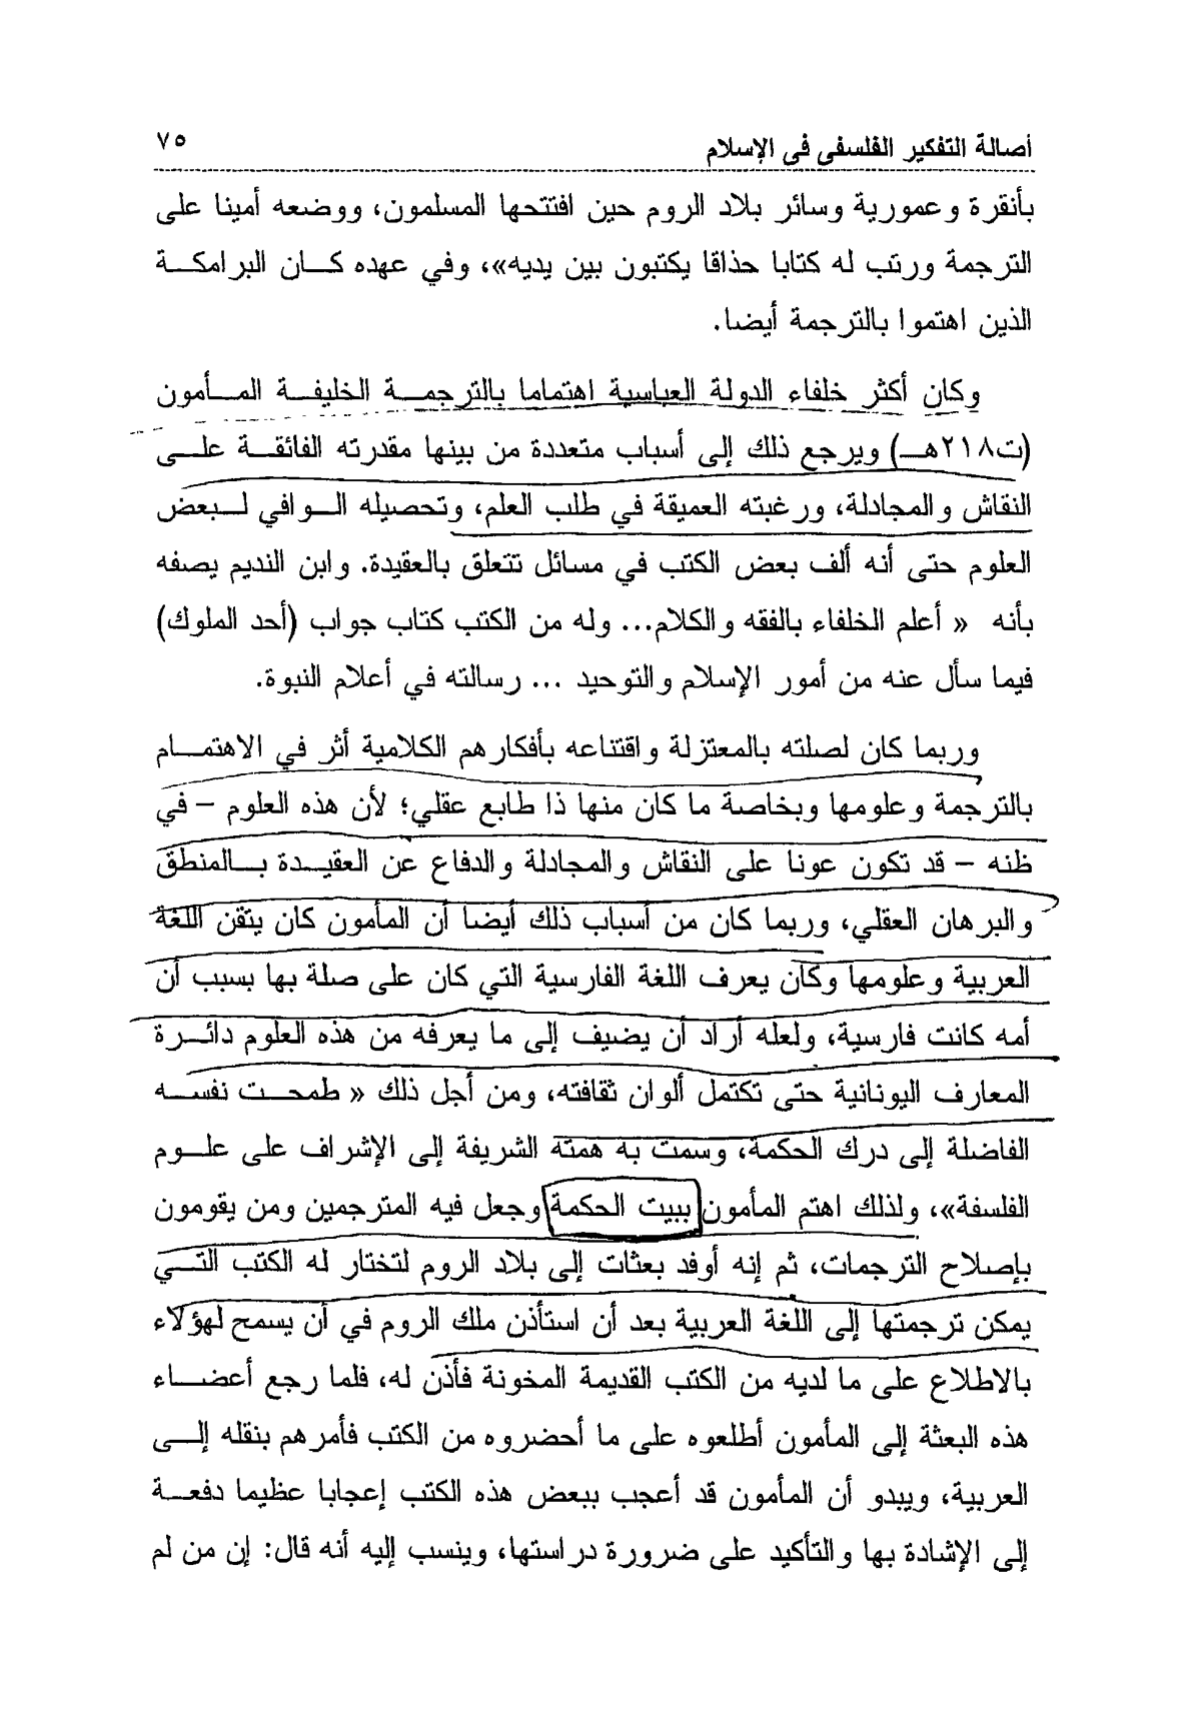 أصالة التفكير الفلسفى فى الإسلام ٧٥
بأنقرة وعمورية وسائر بلاد الروم حين افتتحها المسلمون، ووضعه أمينا على
الترجمة ورتب له كتابا حذاقا يكتبون بين يديه»، وفي عهده كان البرامكة
الذين اهتموا بالترجمة أيضا.
وكان أكثر خلفاء الدولة العباسية اهتماما بالترجمة الخليفة المأمون
(ت٢١٨هـ) ويرجع ذلك إلى أسباب متعددة من بينها مقدرته الفائقة على
النقاش والمجادلة، ورغبته العميقة في طلب العلم، وتحصيله الوافي لبعض
العلوم حتى أنه ألف بعض الكتب في مسائل تتعلق بالعقيدة. وابن النديم يصفه
بأنه « أعلم الخلفاء بالفقه والكلام... وله من الكتب كتاب جواب (أحد الملوك)
فيما سأل عنه من أمور الإسلام والتوحيد ... رسالته في أعلام النبوة.
وربما كان لصلته بالمعتزلة واقتناعه بأفكارهم الكلامية أثر في الاهتمام
بالترجمة وعلومها وبخاصة ما كان منها ذا طابع عقلي؛ لأن هذه العلوم – في
ظنه – قد تكون عونا على النقاش والمجادلة والدفاع عن العقيدة بالمنطق
والبرهان العقلي، وربما كان من أسباب ذلك أيضا أن المأمون كان يتقن اللغة
العربية وعلومها وكان يعرف اللغة الفارسية التي كان على صلة بها بسبب أن
أمه كانت فارسية، ولعله أراد أن يضيف إلى ما يعرفه من هذه العلوم دائرة
المعارف اليونانية حتى تكتمل ألوان ثقافته، ومن أجل ذلك « طمحت نفسه
الفاضلة إلى درك الحكمة، وسمت به همته الشريفة إلى الإشراف على علوم
الفلسفة»، ولذلك اهتم المأمون ببيت الحكمة وجعل فيه المترجمين ومن يقومون
بإصلاح الترجمات، ثم إنه أوفد بعثات إلى بلاد الروم لتختار له الكتب التي
يمكن ترجمتها إلى اللغة العربية بعد أن استأذن ملك الروم في أن يسمح لهؤلاء
بالاطلاع على ما لديه من الكتب القديمة المخونة فأذن له، فلما رجع أعضاء
هذه البعثة إلى المأمون أطلعوه على ما أحضروه من الكتب فأمرهم بنقله إلى
العربية، ويبدو أن المأمون قد أعجب ببعض هذه الكتب إعجابا عظيما دفعة
إلى الإشادة بها والتأكيد على ضرورة دراستها، وينسب إليه أنه قال: إن من لم